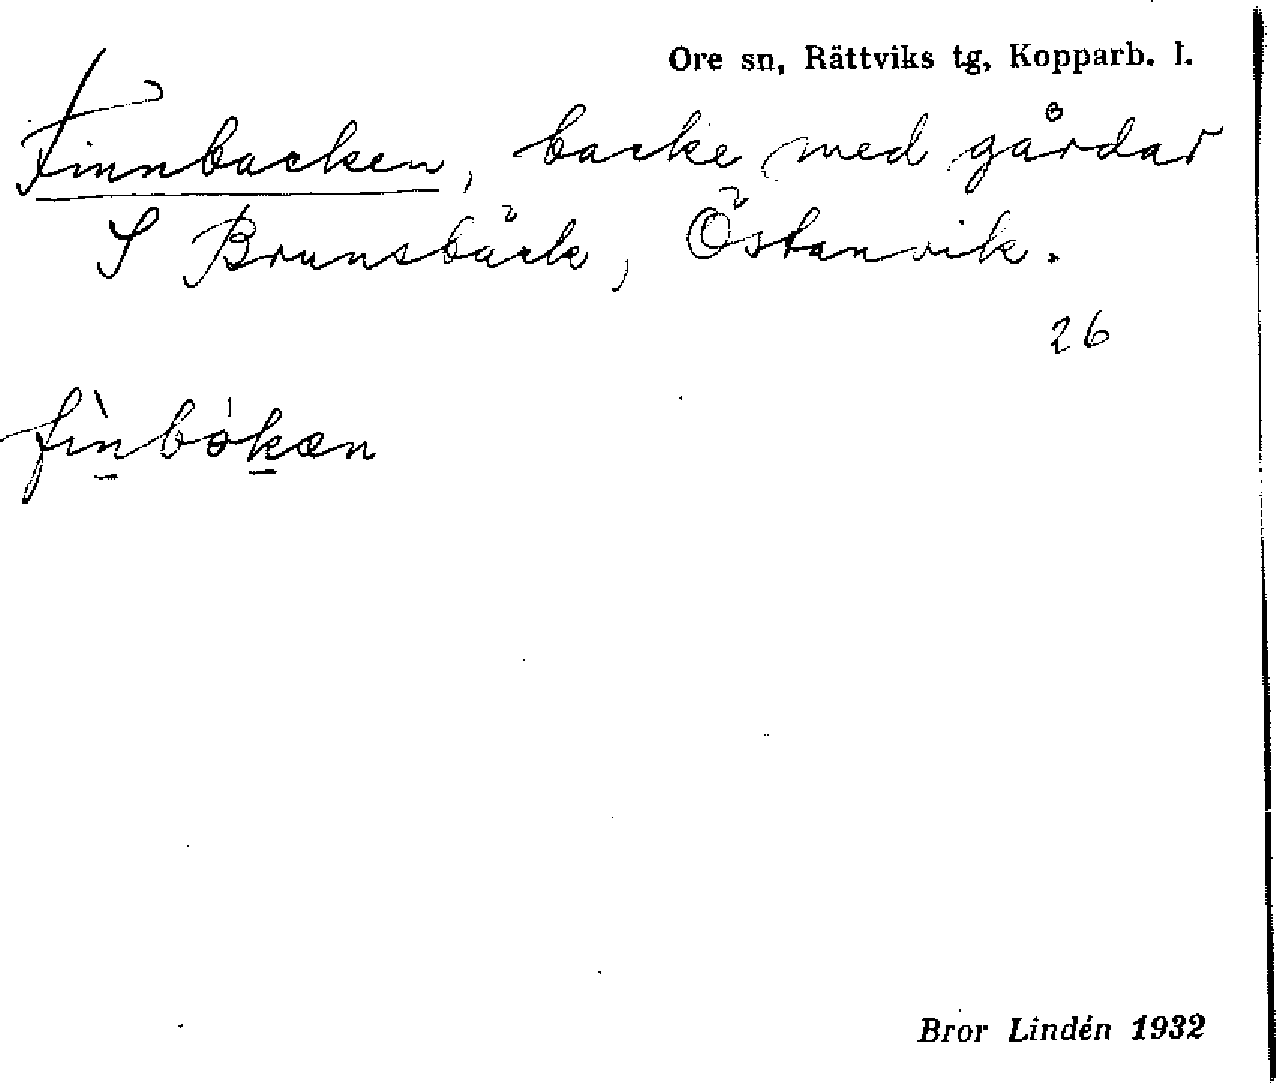 Ore sn, Rättviks tg, Kopparb. l.
Finnbacken, backe med gårdar
S Brunsbäck, Östanvik.
26
fìnbókan
Bror Lindén 1932